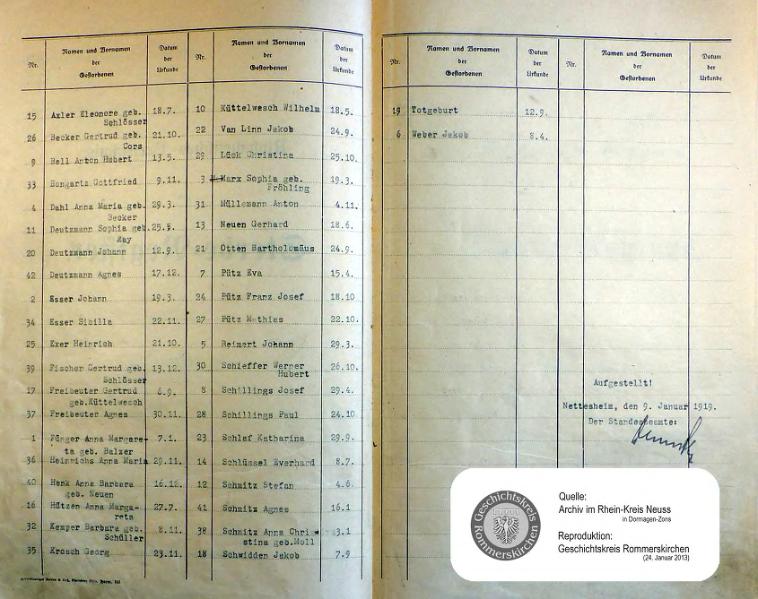 Nr.
Namen und Vornamen
der
Gestorbenen
Datum
der
Urkunde
15 Axler Eleonore geb. 18.7.
Schlösser
26 Becker Gertrud geb. 21.10.
Cors
9 Bell Anton Hubert 13.5.
33 Bongartz Gottfried 9.11.
4 Dahl Anna Maria geb. 29.3.
Becker
11 Deutzmann Sophia geb. 25.5.
May
20 Deutzmann Johann 12.9.
42 Deutzmann Agnes 17.12.
2 Esser Johann 19.3.
34 Esser Sibilla 22.11.
25 Exer Heinrich 21.10.
39 Fischer Gertrud geb. 13.12.
Schlösser
17 Freibeuter Gertrud 6.9.
geb.Küttelwesch
37 Freibeuter Agnes 30.11.
1 Fünger Anna Margare- 7.1.
ta geb. Balzer
36 Heinrichs Anna Maria 29.11.
40 Henk Anna Barbara 16.12.
geb. Neuen
16 Hützen Anna Marga- 27.7.
reta
32 Kemper Barbara geb. 8.11.
Schüller
35 Krosch Georg 23.11.
Nr.
Namen und Vornamen
der
Gestorbenen
Datum
der
Urkunde
10 Küttelwesch Wilhelm 18.5.
22 Van Linn Jakob 24.9.
29 Lück Christina 25.10.
3 Marx Sophia geb. 19.3.
Fröhling
31 Müllemann Anton 4.11.
13 Neuen Gerhard 18.6.
21 Otten Bartholomäus 24.9.
7 Pütz Eva 15.4.
24 Pütz Franz Josef 18.10
27 Pütz Mathias 22.10.
5 Reimert Johann 29.3.
30 Schieffer Werner 26.10.
Hubert
8 Schillings Josef 29.4.
28 Schillings Paul 24.10
23 Schlaf Katharina 29.9.
14 Schlüssel Everhard 8.7.
12 Schmitz Stefan 4.6.
41 Schmitz Agnes 16.1
38 Schmitz Anna Chri- 3.1
stina geb.Moll
18 Schwidden Jakob 7.9
Nr.
Namen und Vornamen
der
Gestorbenen
Datum
der
Urkunde
19 Totgeburt 12.9.
6 Weber Jakob 8.4.
Nr.
Namen und Vornamen
der
Gestorbenen
Datum
der
Urkunde
Aufgestellt!
Nettesheim, den 9. Januar 1919.
Der Standesbeamte:
Geschichtskreis
Rommerskirchen
Quelle:
Archiv im Rhein-Kreis Neuss
in Dormagen-Zons
Reproduktion:
Geschichtskreis Rommerskirchen
(24. Januar 2013)